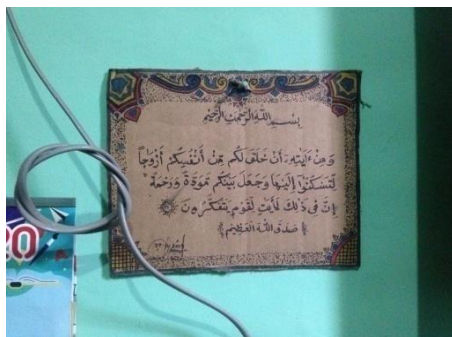 بسم الله الرحمن الرحيم
وَمِنْ ءَايَتِهِ أَنْ خَلَقَ لَكُم مِّنْ أَنْفُسِكُمْ أَزْوَٰجًا
لِّتَسْكُنُوٓا۟ إِلَيْهَا وَجَعَلَ بَيْنَكُم مَّوَدَّةً وَرَحْمَةً
إِنَّ فِى ذَٰلِكَ لَأَيَٰتٍ لِّقَوْمٍ يَتَفَكَّرُونَ
صدق الله العظيم
20